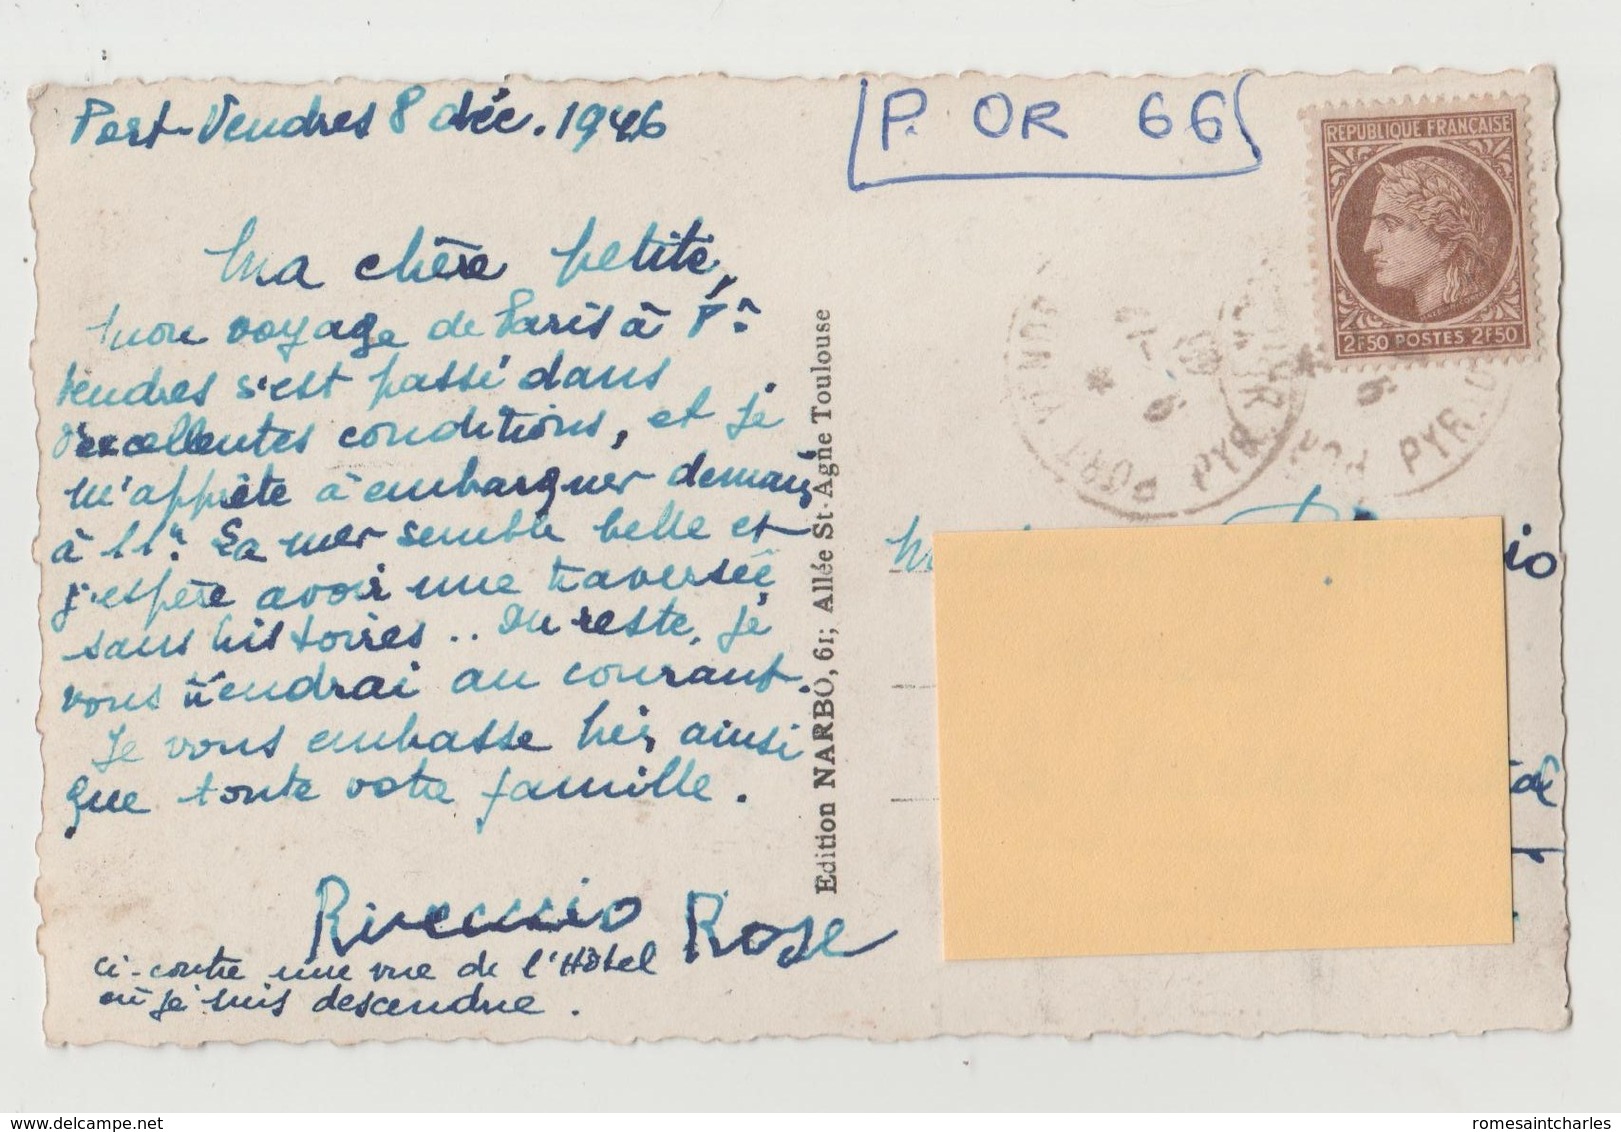 Port-Vendres 8 déc. 1946
P. OR 66
REPUBLIQUE FRANÇAISE
2F50 POSTES 2F50
Ma chère petite,
mon voyage de Paris à Pt
Vendres s'est passé dans
d'excellentes conditions, et je
m'apprête à embarquer demain
à 11h. La mer semble belle et
j'espère avoir une traversée
sans histoires.. Du reste, je
vous tiendrai au courant.
Je vous embrasse bien, ainsi
que toute votre famille.
Rose
ci-contre une vue de l'Hôtel
où je suis descendue.
Edition NARBO, 61; Allée St-Agne Toulouse
PORT VENDRES
PYR. OR
romesaintcharles